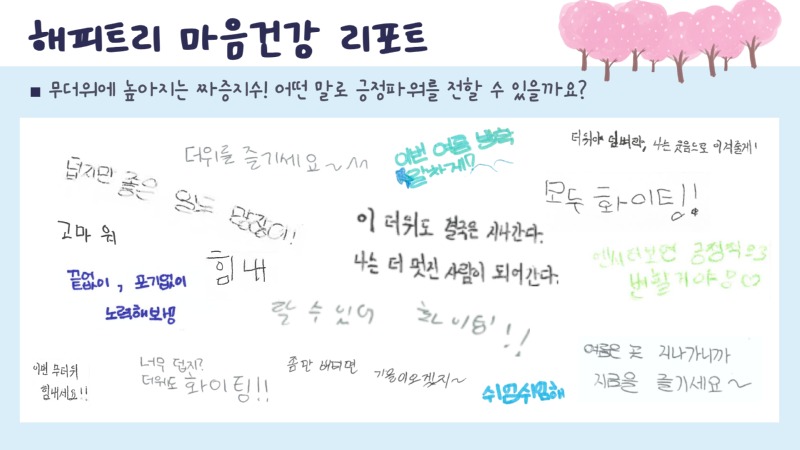 해피트리 마음건강 리포트
■ 무더위에 높아지는 짜증지수! 어떤 말로 긍정파워를 전할 수 있을까요?
더위를 즐기세요~^^
이번 여름 방학
잘하게!
더위야 덤벼라, 나는 웃음으로 이겨줄게!
덥지만 좋은 일도 많잖아!
모두 화이팅!!
고마워
이 더위도 결국은 지나간다.
나는 더 멋진 사람이 되어간다.
힘내
긍정적으로
변할거야
끝없이, 포기없이
노력해보셈
할 수 있어 화이팅!!
이번 무더위
힘내세요!!
너무 덥지?
더위도 화이팅!!
좀만 버티면
가을이오겠지~
쉬엄쉬엄해
여름은 곧 지나가니까
지금을 즐기세요~